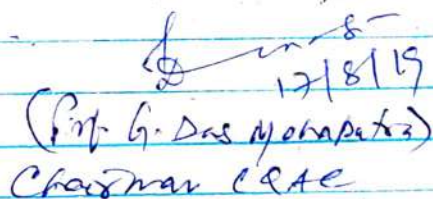 17/8/19
(Prof. G. Das Mohapatra)
Chairman CQAC